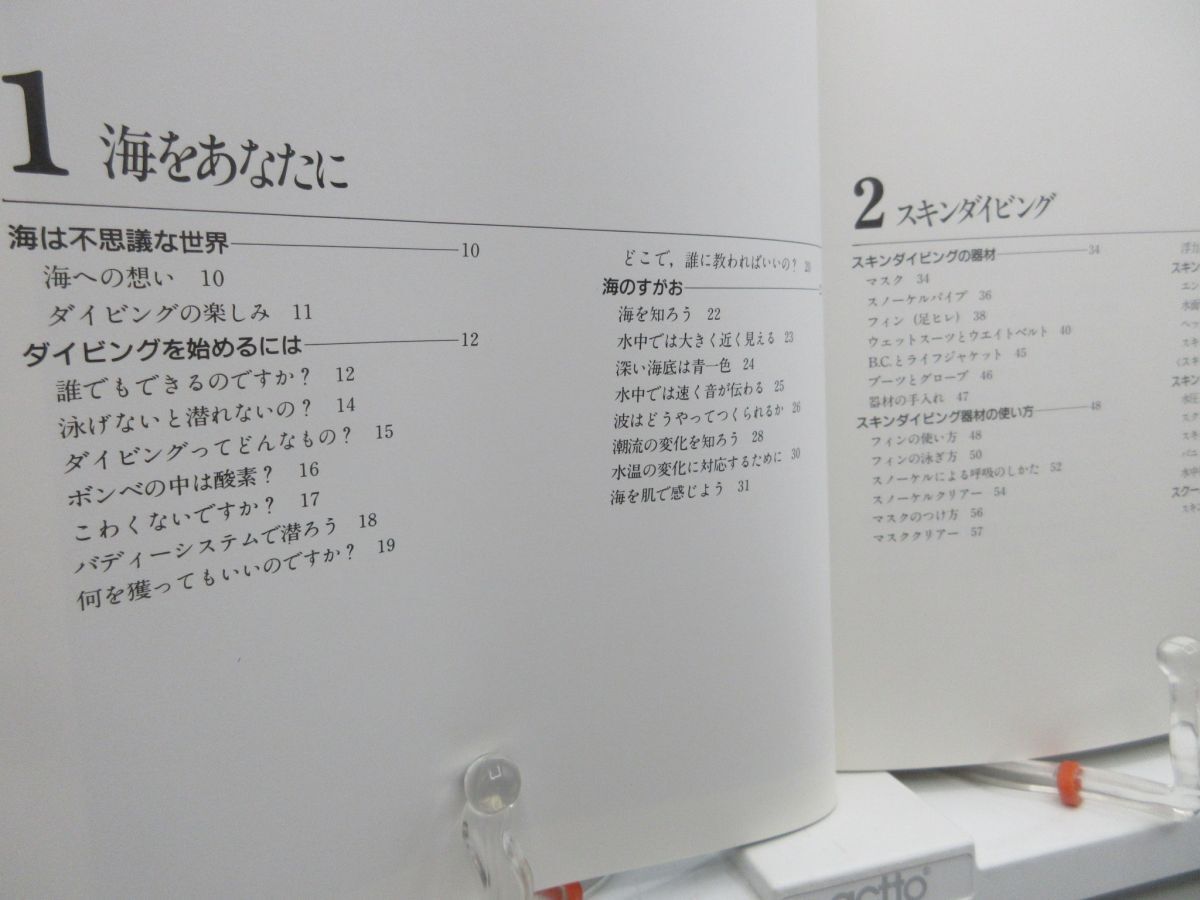 1 海をあなたに
海は不思議な世界 10
海への想い 10
ダイビングの楽しみ 11
ダイビングを始めるには 12
誰でもできるのですか? 12
泳げないと潜れないの? 14
ダイビングってどんなもの? 15
ボンベの中は酸素? 16
こわくないですか? 17
バディーシステムで潜ろう 18
何を獲ってもいいのですか? 19
どこで,誰に教わればいいの? 20
海のすがお
海を知ろう 22
水中では大きく近く見える 23
深い海底は青一色 24
水中では速く音が伝わる 25
波はどうやってつくられるか 26
潮流の変化を知ろう 28
水温の変化に対応するために 30
海を肌で感じよう 31
2 スキンダイビング
スキンダイビングの器材 34
マスク 34
スノーケルパイプ 36
フィン (足ヒレ) 38
ウェットスーツとウエイトベルト 40
B.C.とライフジャケット 45
ブーツとグローブ 46
器材の手入れ 47
スキンダイビング器材の使い方 48
フィンの使い方 48
フィンの泳ぎ方 50
スノーケルによる呼吸のしかた 52
スノーケルクリアー 54
マスクのつけ方 56
マスククリアー 57
actto